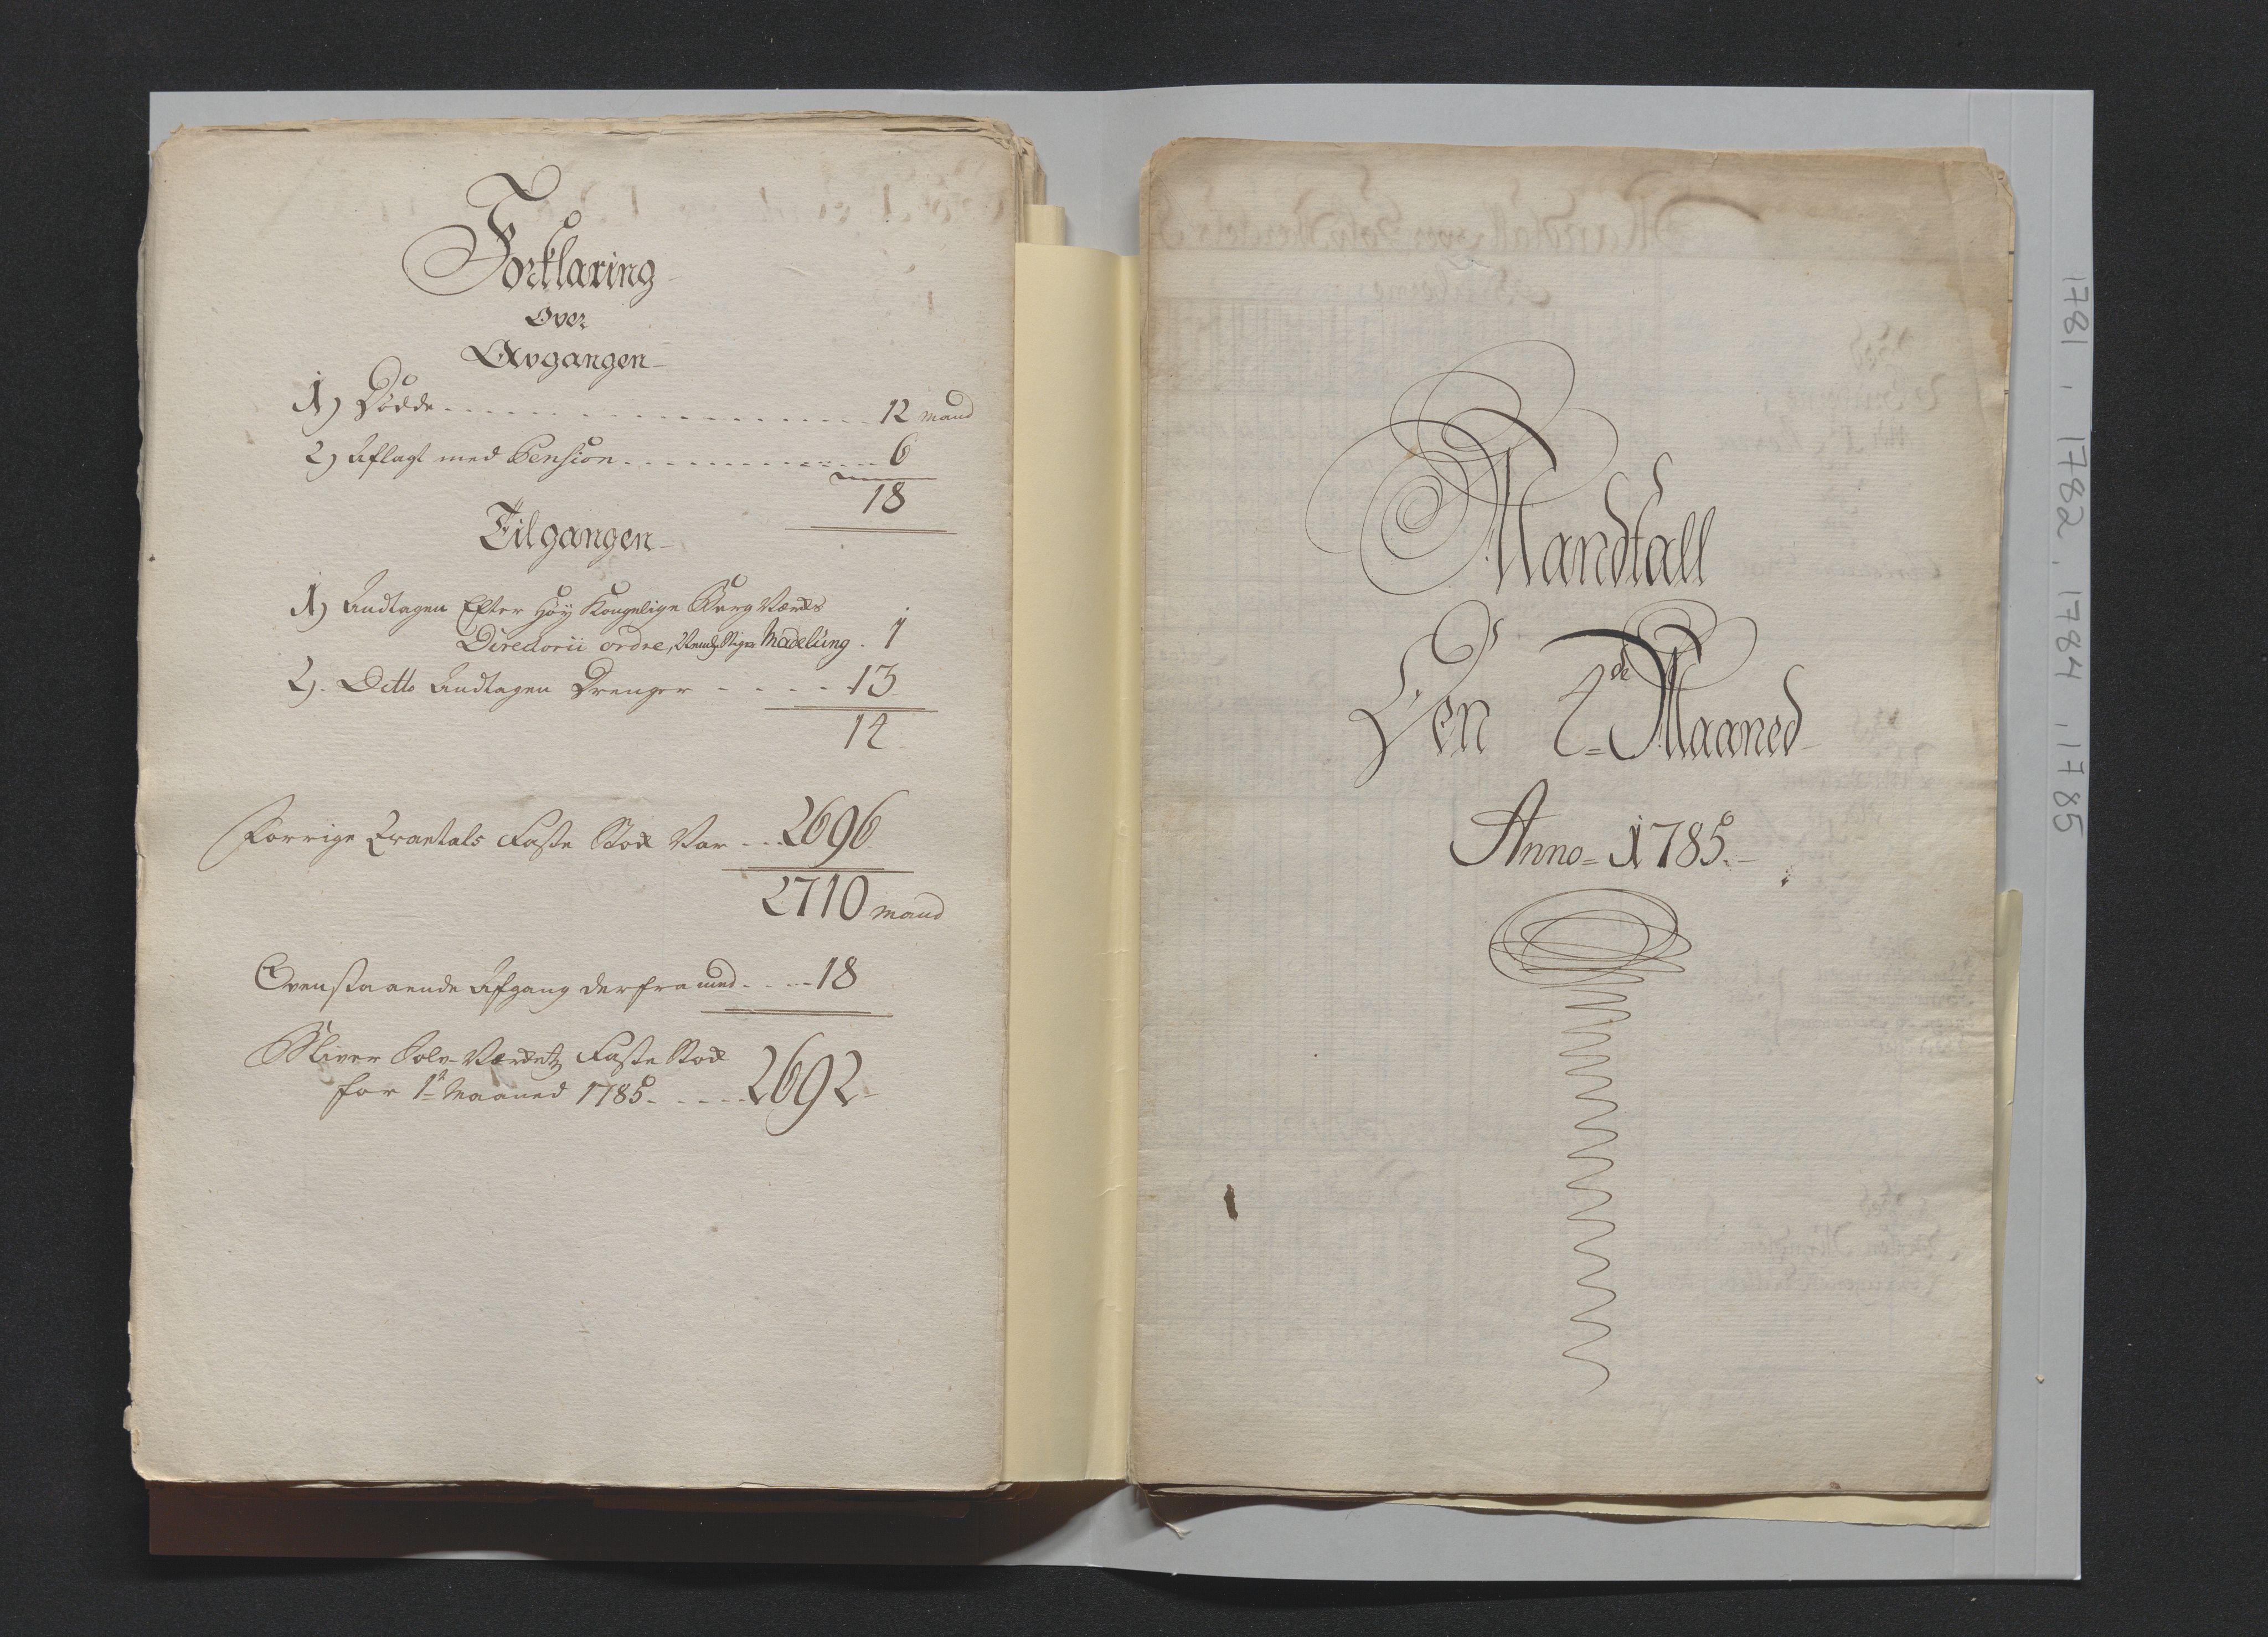 Forklaring
Over
Avgangen
1) Dödde 12 mand
2) Aflagt med Pension 6
18
Tilgangen
1) Andtagen Efter Höy Kongelige Berg Værks
Directorii ordre, Madelung . 1
2). Ditto Andtagen Drenger 13
14
Forrige Qvartals Faste Stok Var 2696
2710 mand
Ovenstaaende Afgang derfra 18
Bliver Sölv-Værkets Faste Stok
for 1te Maaned 1785 2692
Mandtall
Den 2de Maaned
Anno 1785.
1781, 1782, 1784, 1785